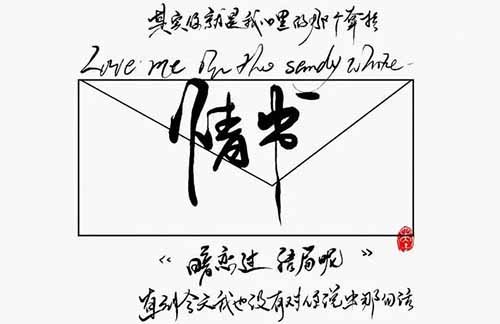 其实你就是我心里的那个牵挂
Love me in the sandy white
情书
“暗恋过 结局呢”
直到今天我也没有对你说出那句话